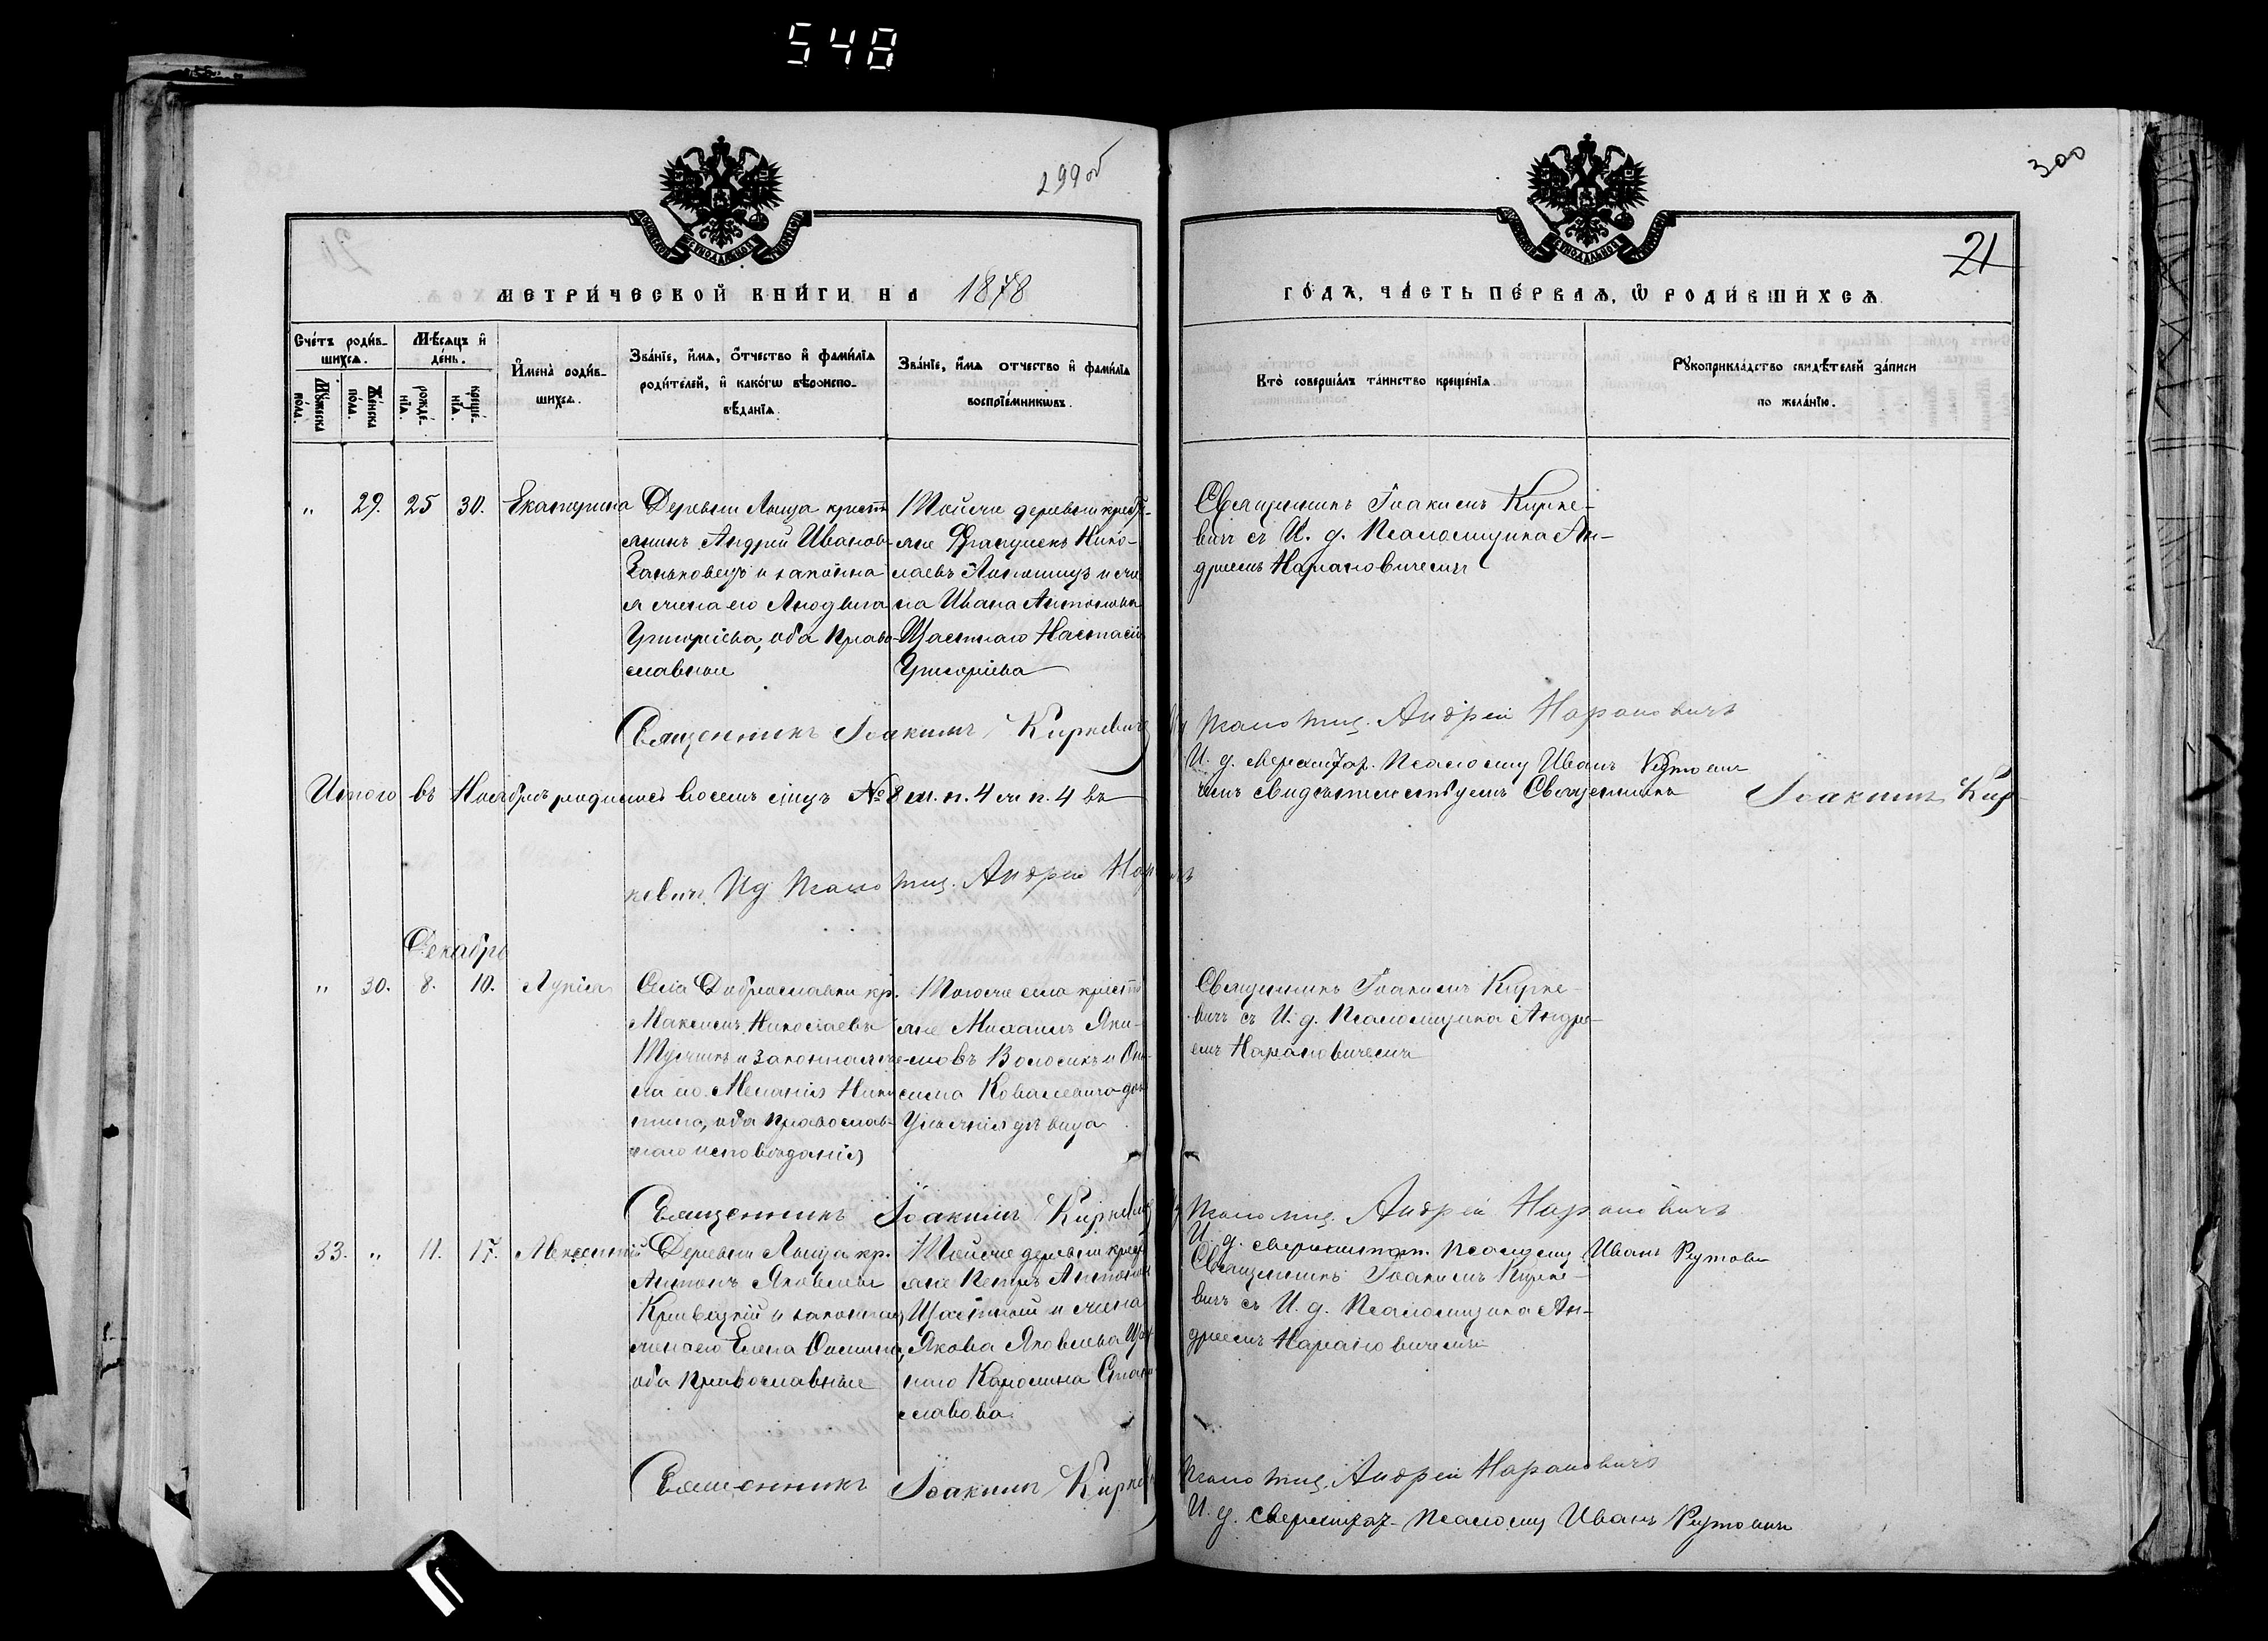 548
299об
300
21
МЕТРИ́ЧЕСКОЙ КНИ́ГИ НА 1878
ГО́ДЪ, ЧА́СТЬ ПЕ́РВАЯ, Ѡ РОДИ́ВШИХСЯ
Сче́тъ роди́в-
шихся.
Мѣ́сяцъ и
де́нь.
Му́жеска
по́ла.
Же́нска
по́ла.
рожде́-
нія.
креще́-
нія.
Имена̀ роди́в-
шихся.
Зва́ніе, и́мя, о́тчество и фами́лія
роди́телей, и како́гѡ вѣроиспо-
вѣ́данія.
Зва́ніе, и́мя о́тчество и фами́лія
воспріе́мникѡвъ.
Кто̀ соверша́лъ та́инство креще́нія.
Рукоприкла́дство свидѣ́телей за́писи
по жела́нію.
„ 29. 25 30. Екатерина
Деревни Лыща крестъ
янинъ Андрей Иванов
и законна
я жена его Людвига
Григоріева, оба право-
славные
Тойже деревни крестъ-
яне Францискъ Нико-
лаевъ и же
на Ивана Антонова
Щастнаго Настасія
Григоріева
Священникъ Іоакимъ Кирке-
вичъ съ И. д. Псаломщика Ан-
дреемъ Нарановичемъ
Священникъ Іоакимъ Киркевичъ
Псаломщ. Андрей Нарановичъ
И. д. сверхштат. Псаломщ Иванъ
Итого въ Ноябрѣ родилось восемь лицъ № 8 м. п. 4 ж п. 4 въ
чемъ свидѣтельствуемъ Священникъ Іоакимъ Кир
кевичъ. Ид Псаломщ. Андрей
Декабрь
„ 30. 8. 10. Лукія
Села Доброславки кр.
Максимъ Николаевъ
и законная же-
на его Меланія Ники
тина, оба православ-
наго исповѣданія
Тогоже села крестъ
яне Михаилъ Яки-
мовъ Волосикъ и Они-
сима Ковалевича дочь
дѣвица
Священникъ Іоакимъ Кирке-
вичъ съ И. д. Псаломщика Андре-
емъ Нарановичемъ
Священникъ Іоакимъ Киркевичъ
Псаломщ. Андрей Нарановичъ
И. д. сверхштат. Псаломщ Иванъ Рутович
33. „ 11. 17.
Деревни Лыща кр.
Антонъ Яковлевъ
Кривецкій и законная
жена его Елена
оба православные
Тойже деревни крест
яне Петръ Антонов
Щастный и жена
Якова Яковлева Щаст
наго Каролина Стани
славова
Священникъ Іоакимъ Кирке-
вичъ съ И. д. Псаломщика Ан-
дреемъ Нарановичемъ
Священникъ Іоакимъ Киркев
Псаломщ. Андрей Нарановичъ
И. д. сверхштат. Псаломщ Иванъ Рутович